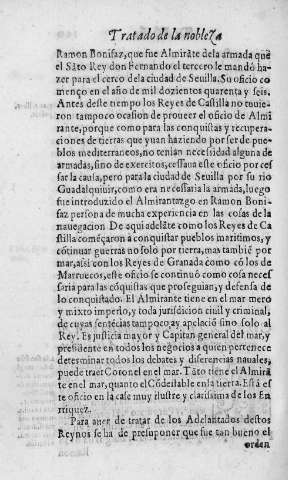 Tratado de la nobleza
Ramon Bonifaz, que fue Almirāte de la armada quē
el Sāto Rey don Fernando el tercero le mandó ha-
zer para el cerco dela ciudad de Seuilla. Su oficio co
menço en el año de mil dozientos quarenta y seis.
Antes deste tiempo los Reyes de Castilla no tuuie-
ron tampoco ocasion de proueer el oficio de Almi
rante, porque como para las conquistas y recupera-
ciones de tierras que yuan haziendo por ser de pue
blos mediterraneos, no tenian necessidad alguna de
armadas, sino de exercitos, cessaua este oficio por ces
sar la causa, pero para la ciudad de Seuilla por su rio
Guadalquiuir, como era necessaria la armada, luego
fue introduzido el Almirantazgo en Ramon Boni-
faz persona de mucha experiencia en las cosas de la
nauegacion. De aqui adelāte como los Reyes de Ca
stilla començaron à conquistar pueblos maritimos, y
cōtinuar guerras no solo por tierra, mas tambiē por
mar, assi con los Reyes de Granada como cō los de
Marruecos, este oficio se continuó como cosa neces
saria para las cōquistas que proseguian, y defensa de
lo conquistado. El Almirante tiene en el mar mero
y mixto imperio, y toda jurisdicion ciuil y criminal,
de cuyas sentēcias tampoco ay apelació sino solo al
Rey. Es justicia mayor y Capitan general del mar, y
presidente en todos los negocios a quien pertenece
determinar todos los debates y diferencias nauales,
puede traer Coronel en el mar. Tāto tiene el Almirā
te en el mar, quanto el Cōdestable en la tierra. Està es
te oficio en la casa muy ilustre y clarissima de los En
riquez.
Para auer de tratar de los Adelantados destos
Reynos se ha de presuponer que fue tan bueno el
orden